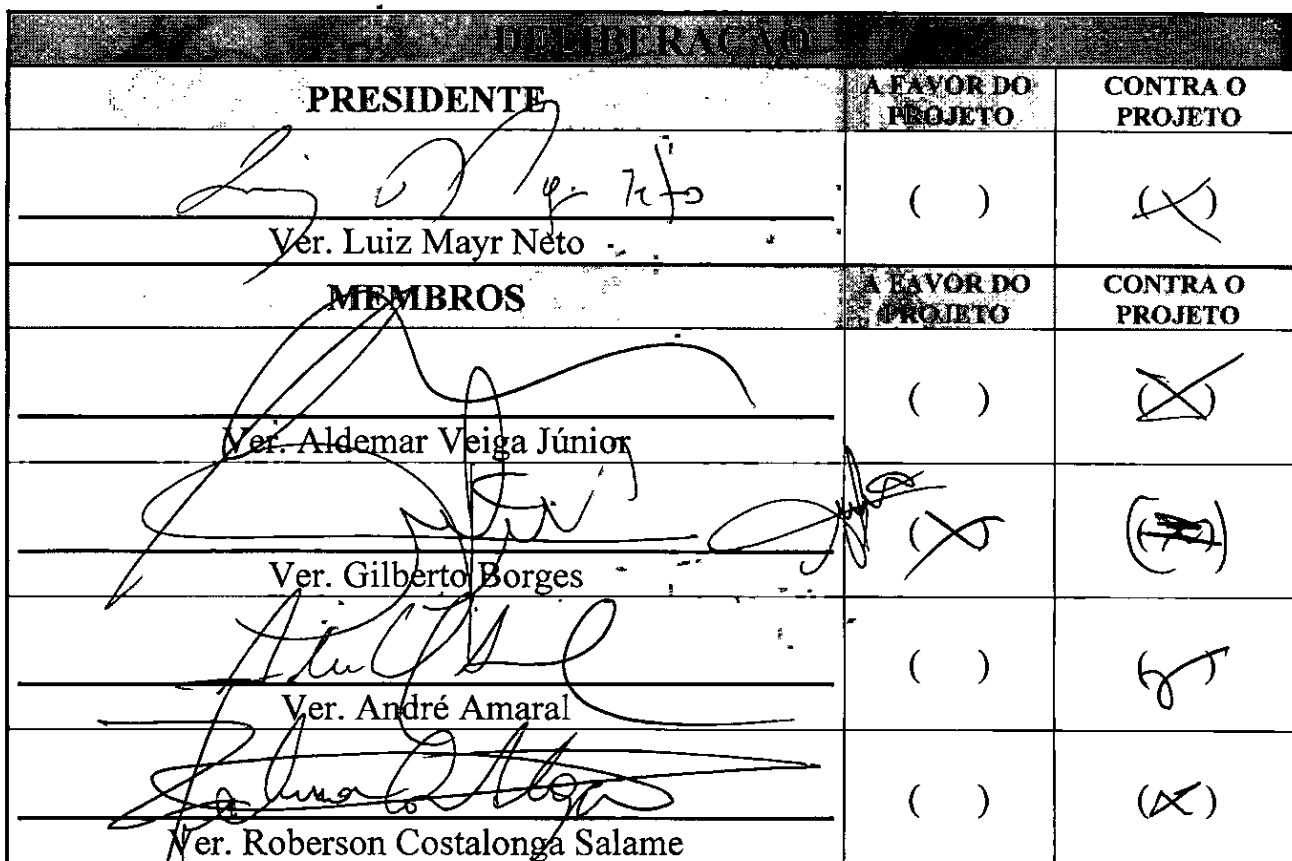 DELIBERAÇÃO
PRESIDENTE
A FAVOR DO PROJETO
CONTRA O PROJETO
( ) (X)
Ver. Luiz Mayr Neto
MEMBROS
A FAVOR DO PROJETO
CONTRA O PROJETO
( ) (X)
Ver. Aldemar Veiga Júnior
(X)
Ver. Gilberto Borges
( )
Ver. André Amaral
( ) (X)
Ver. Roberson Costalonga Salame